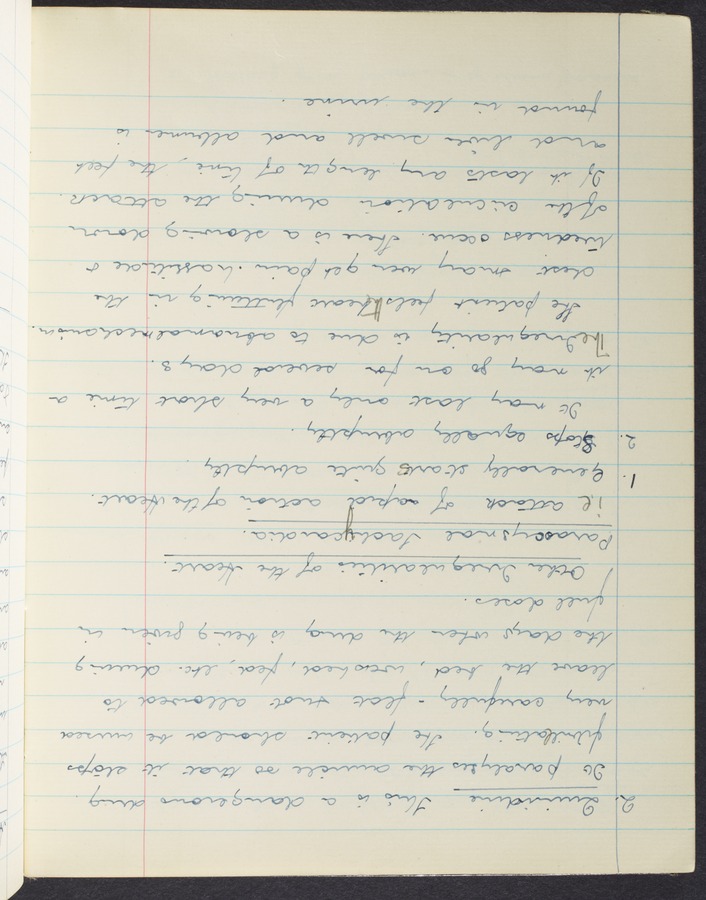 2. Quinidine This is a dangerous drug.
It paralyses the auricle so that it stops
fibrillating. The patient should be nursed
very carefully - flat & not allowed to
leave the bed, washed, fed, etc. during
the days when the drug is being given in
full doses.
Other Irregularities of the Heart.
Paroxysmal Tachycardia.
i.e attack of rapid action of the Heart.
1. Generally starts quite abruptly
2. Stops equally abruptly.
It may last only a very short time or
it may go on for several days.
The Irregularity is due to abnormal mechanism.
The patient feels Heart fluttering in the
chest & may even get pain. Lassitude &
tiredness occur. There is a slowing down
of the circulation during the attack.
If it lasts any length of time, the feet
and liver swell and albumen is
found in the urine.